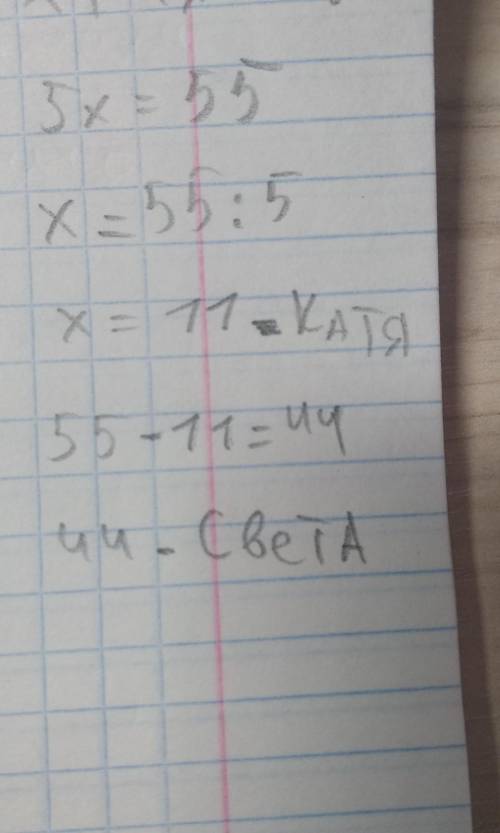 5x = 55
x = 55 : 5
x = 11 - Катя
55 - 11 = 44
44 - Света